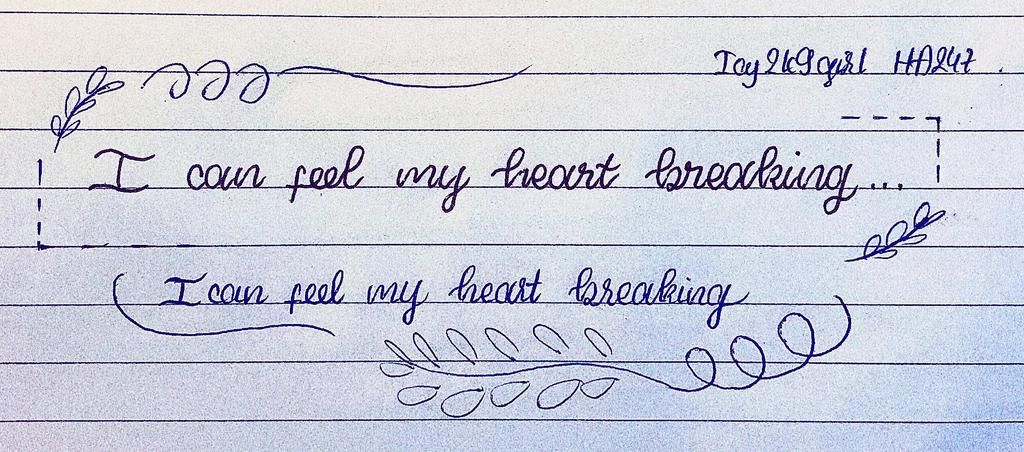 Icy2k9girl HA247.
I can feel my heart breaking...
I can feel my heart breaking